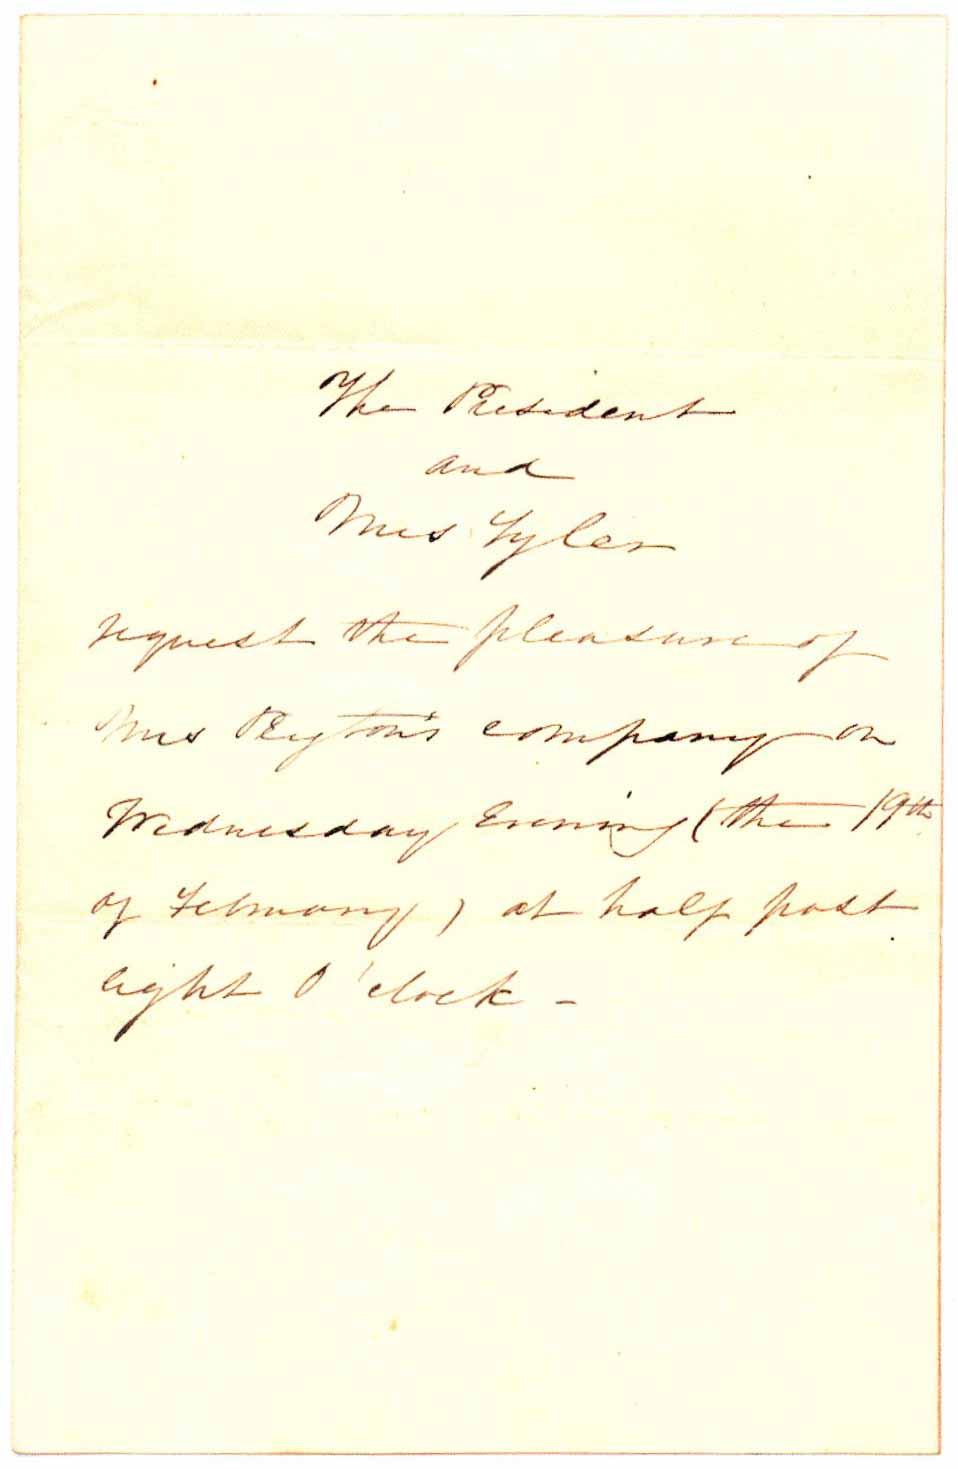 The President
and
Mrs Tyler
request the pleasure of
Mrs Peyton's company on
Wednesday Evening (the 19th
of February) at half past
eight O'clock -